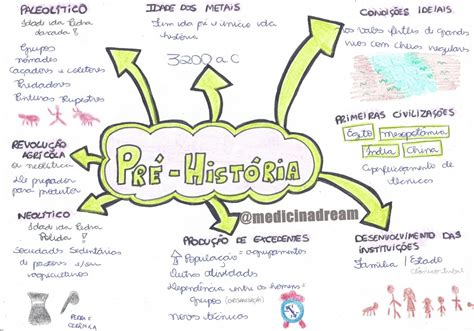 PALEOLÍTICO
Idade da Pedra
Lascada!
Grupos
nômades
Caçadores e coletores
Predadores
Pinturas Rupestres
IDADE DOS METAIS
Fim da pré e início da
história
3200 a.C
CONDIÇÕES IDEIAIS
nos vales férteis de grandes
rios com cheias regulares
PRIMEIRAS CIVILIZAÇÕES
Egito Mesopotâmia
Índia China
Aperfeiçoamento de
técnicas
REVOLUÇÃO
AGRÍCOLA
ou neolítica
De predador
para produtor
PRÉ-HISTÓRIA
@medicinadream
NEOLÍTICO
Idade da Pedra
Polida!
Sociedades Sedentárias
de pastores e/ou
agricultores
PEDRA E
CERÂMICA
PRODUÇÃO DE EXCEDENTES
População = agrupamentos
Outras atividades
Dependência entre os homens =
Grupos
Novas técnicas
DESENVOLVIMENTO DAS
INSTITUIÇÕES
Família / Estado